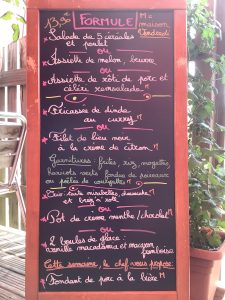 13,90 FORMULE M = maison
Vendredi
* Salade de 5 céréales
et poulet
ou
* Assiette de melon, beurre
ou
* Assiette de rôti de porc et
céleri remoulade M
* Fricassée de dinde
au curry M
ou
* Filet de lieu noir
à la crème de citron M
Garnitures: frites, riz, mogettes,
haricots verts, fondue de poireaux
ou poêlée de courgettes M
ou
* Pot de crème menthe/chocolat M
ou
* 2 boules de glace:
vanille macadamia et macaron
framboise
Cette semaine, le chef vous propose:
* Fondant de porc à la bière M